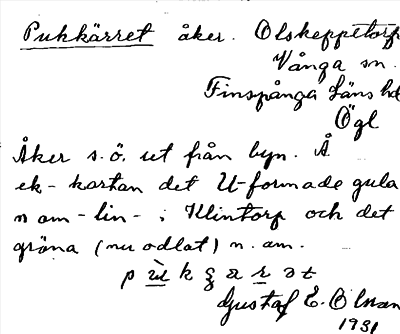 Pukkärret åker. Olskeppetorp
Vånga sn.
Finspånga läns hd
Ögl
Åker s.ö. ut från byn. Å
ek-kartan det U-formade gula
n am-lin- i Klintorp och det
gröna (nu odlat) n. am.
Gustaf E. Olson
1931